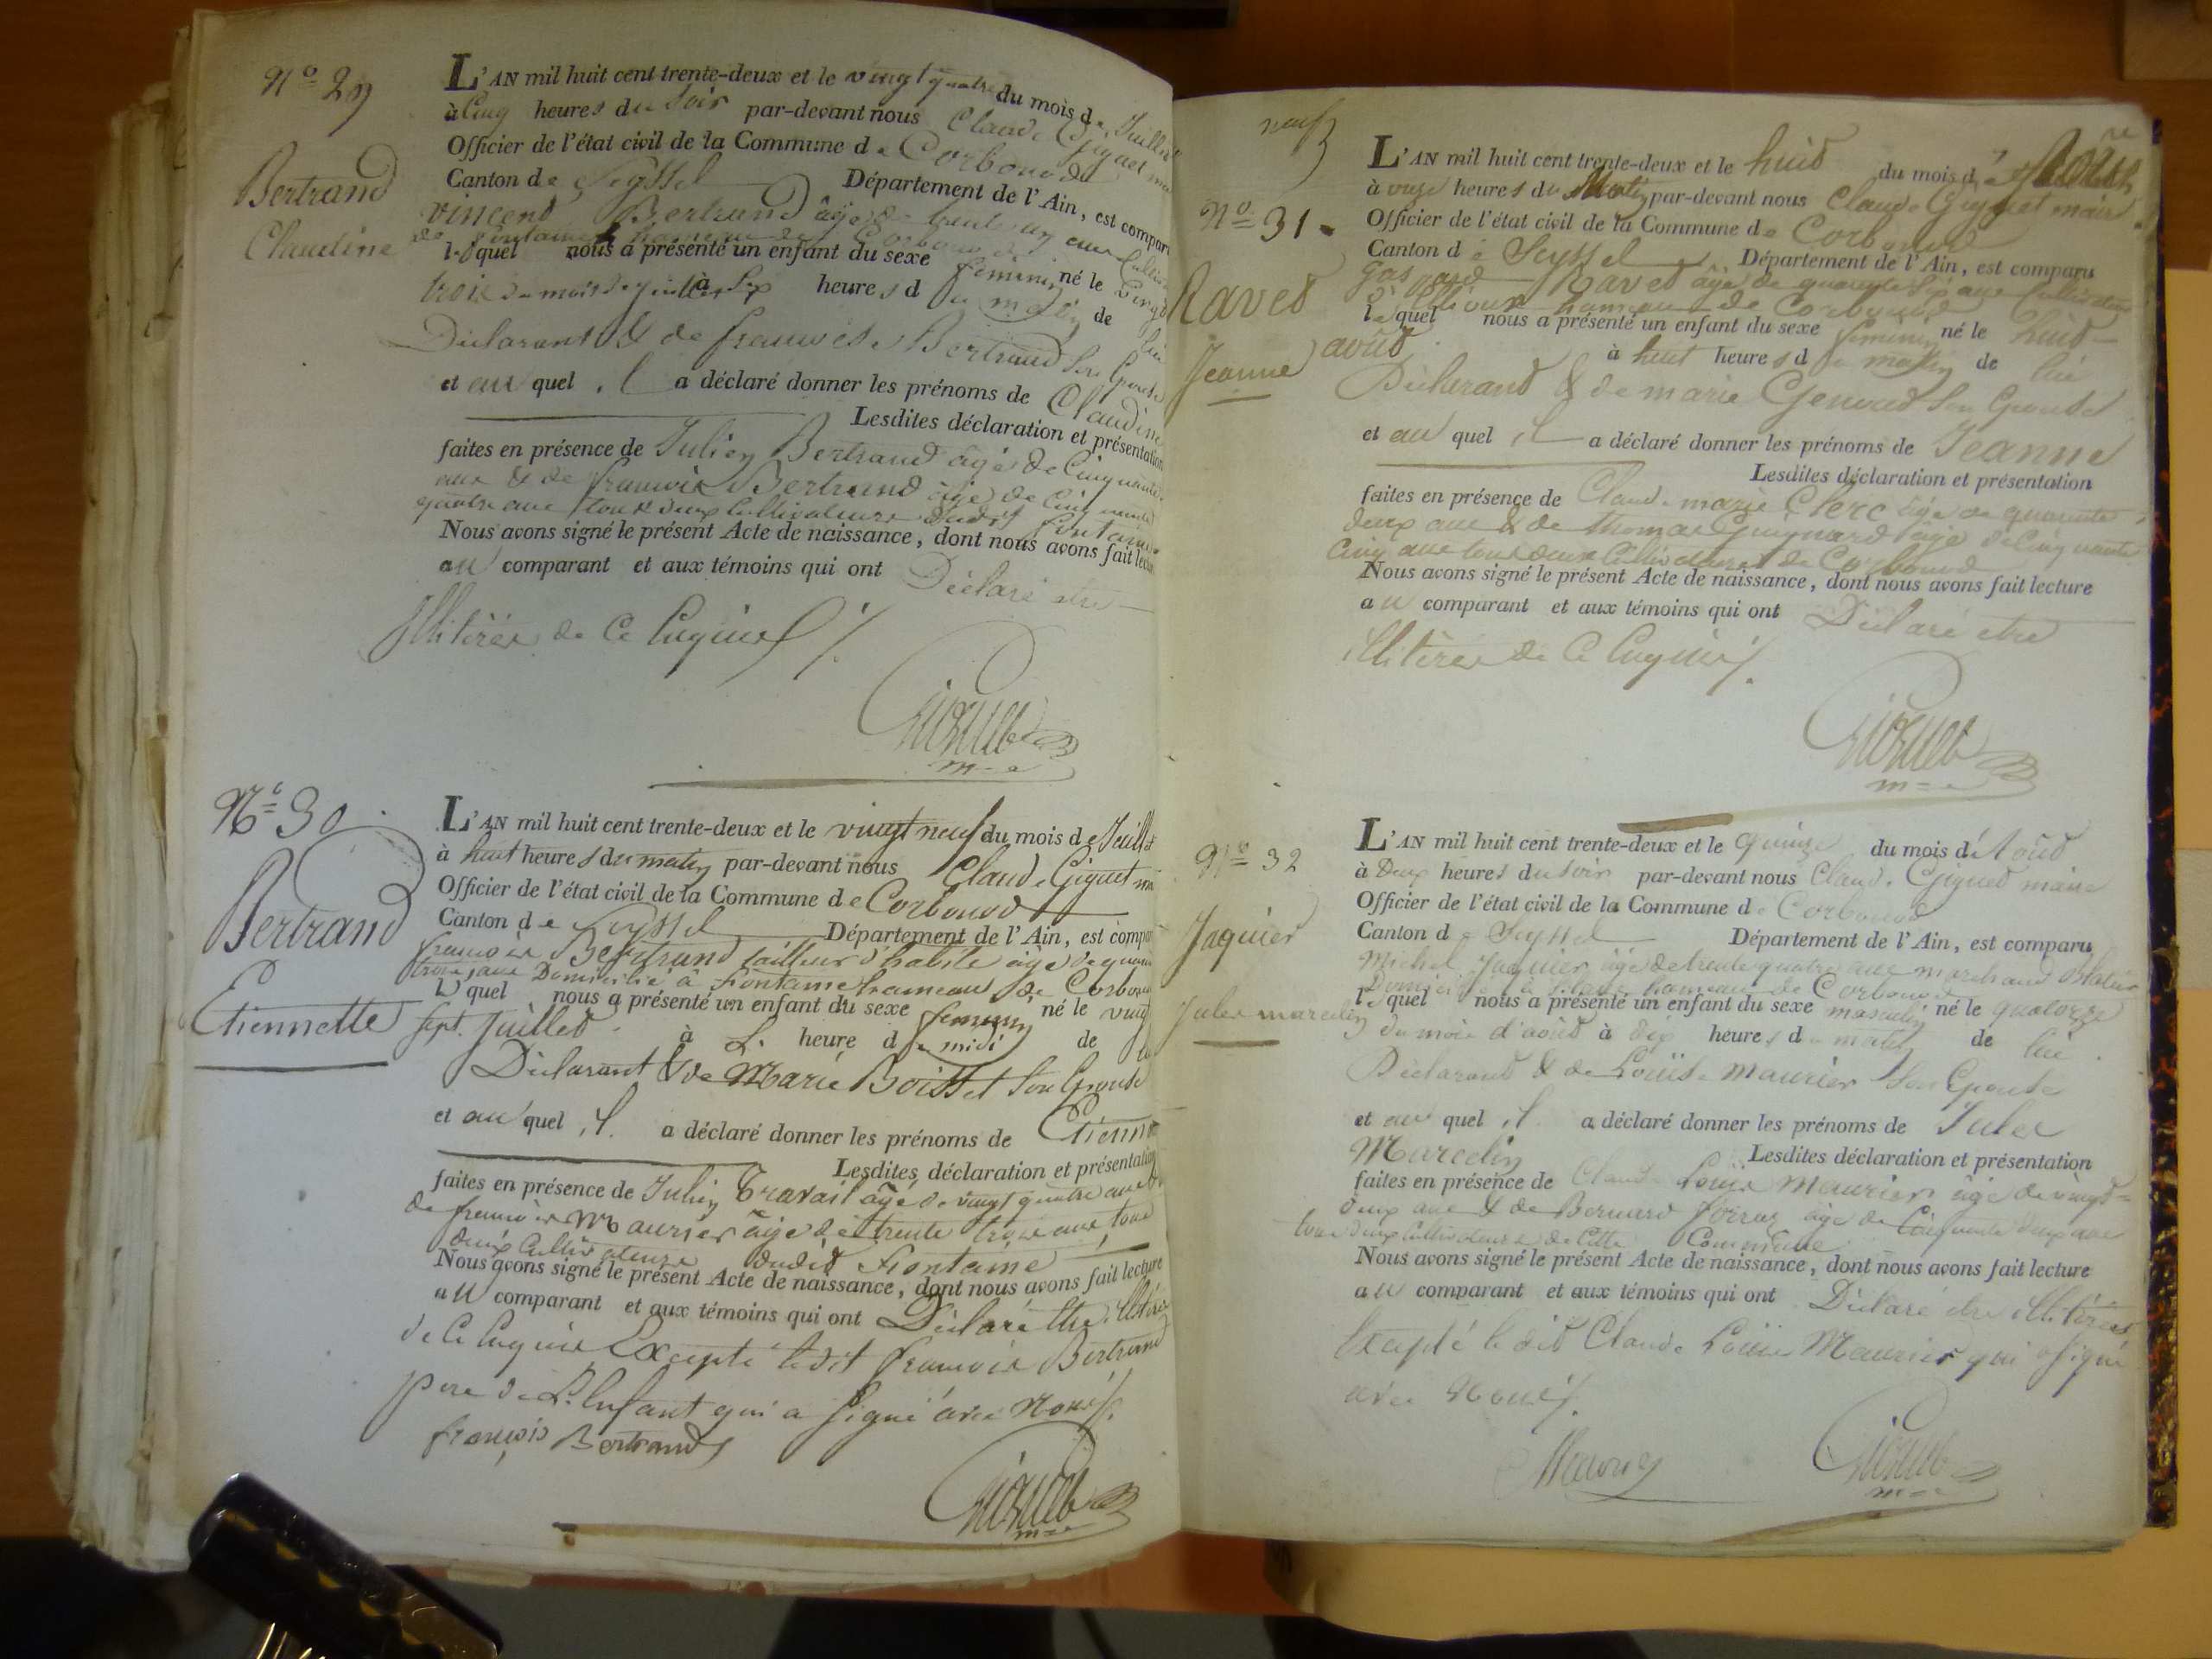 N.º 29
Bertrand
Claudine
L'AN mil huit cent trente-deux et le vingt quatre du mois de Juillet
à Cinq heures du Soir par-devant nous Claude Giguet
Officier de l'état civil de la Commune de Corbonod
Canton de Seyssel Département de l'Ain, est comparu
vincend Bertrand âgé de
de fontaine hameau de Corbonod
lequel nous a présenté un enfant du sexe féminin né le vingt
trois du mois de juillet à heures du matin de lui
Déclarant & de françoise Bertrand Son Epouse
et au quel il a déclaré donner les prénoms de Claudine
Lesdites déclaration et présentation
faites en présence de Julien Bertrand âgé de Cinquante
ans & de françois Bertrand âgé de Cinquante
quatre ans tous deux Cultivateurs dudit fontaine
Nous avons signé le présent Acte de naissance, dont nous avons fait lecture
au comparant et aux témoins qui ont Déclaré etre
Illitérés de Ce Enquis /.
Giguet
m=e
N.º 30
Bertrand
Etiennette
L'AN mil huit cent trente-deux et le vingt neuf du mois de Juillet
à huit heures du matin par-devant nous Claude Giguet
Officier de l'état civil de la Commune de Corbonod
Canton de Seyssel Département de l'Ain, est comparu
francois Bertrand tailleur d'habits âgé de
trois ans Domicilié à fontaine hameau de Corbonod
Lequel nous a présenté un enfant du sexe feminin né le vingt
sept Juillet à L. heure de midi de
Déclarant & de Marie Boisset Son Epouse
et au quel il a déclaré donner les prénoms de Etiennette
Lesdites déclaration et présentation
faites en présence de Julien Travail âgé de vingt quatre ans &
de francois Maurier âgé de trente trois ans tous
deux Cultivateurs dudit Fontaine
Nous avons signé le présent Acte de naissance, dont nous avons fait lecture
au comparant et aux témoins qui ont Déclaré Etre illitérés
de Ce Enquis Excepté ledit francois Bertrand
père de L'Enfant qui a signé avec Nous /.
françois Bertrand
Giguet
m=e
neuf
N.º 31.
Raved
Jeanne
L'AN mil huit cent trente-deux et le huid du mois d'Août
à onze heures du Matin par-devant nous Claude Giguet maire
Officier de l'état civil de la Commune de Corbonod
Canton de Seyssel Département de l'Ain, est comparu
Gaspard Raved âgé de quarante six ans Cultivateur
hameau de Corbonod
lequel nous a présenté un enfant du sexe féminin né le huid
août à huit heures du matin de lui
Déclarand & de marie Genoud Son Epouse
et au quel il a déclaré donner les prénoms de Jeanne
Lesdites déclaration et présentation
faites en présence de Claude marie Clerc âgé de quarante
deux ans & de thomas Guignard âgé de Cinquante
Cinq ans tous deux Cultivateurs de Corbonod
Nous avons signé le présent Acte de naissance, dont nous avons fait lecture
au comparant et aux témoins qui ont Déclaré etre
illitérés de Ce Enquis /.
Giguet
m=e
N.º 32
Jaquier
Jules marcelin
L'AN mil huit cent trente-deux et le quinze du mois d'Août
à Deux heures du Soir par-devant nous Claude Giguet maire
Officier de l'état civil de la Commune de Corbonod
Canton de Seyssel Département de l'Ain, est comparu
Michel Jaquier âgé de trente quatre ans marchand
Domicilié à hameau de Corbonod
lequel nous a présenté un enfant du sexe masculin né le quatorze
du mois d'août à dix heures du matin de lui
Déclarand & de Loüise maurier Son Epouse
et au quel il a déclaré donner les prénoms de Jules
Marcelin Lesdites déclaration et présentation
faites en présence de Claude Loüis maurier âgé de vingt=
deux ans & de Bernard âgé de Cinquante deux ans
tous deux Cultivateurs de Cette Commune
Nous avons signé le présent Acte de naissance, dont nous avons fait lecture
au comparant et aux témoins qui ont Déclaré etre illitérés
Excepté le dit Claude Loüis Maurier qui a signé
avec Nous /.
Giguet
m=e